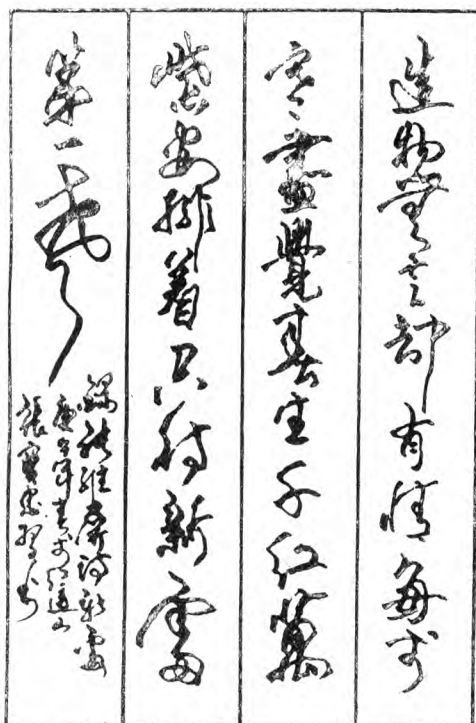 造物無言却有情每于
寒盡覺春生千红萬
紫安排着只待新雷
第一聲
錄張維屏詩新雷
年春於
張寶忠